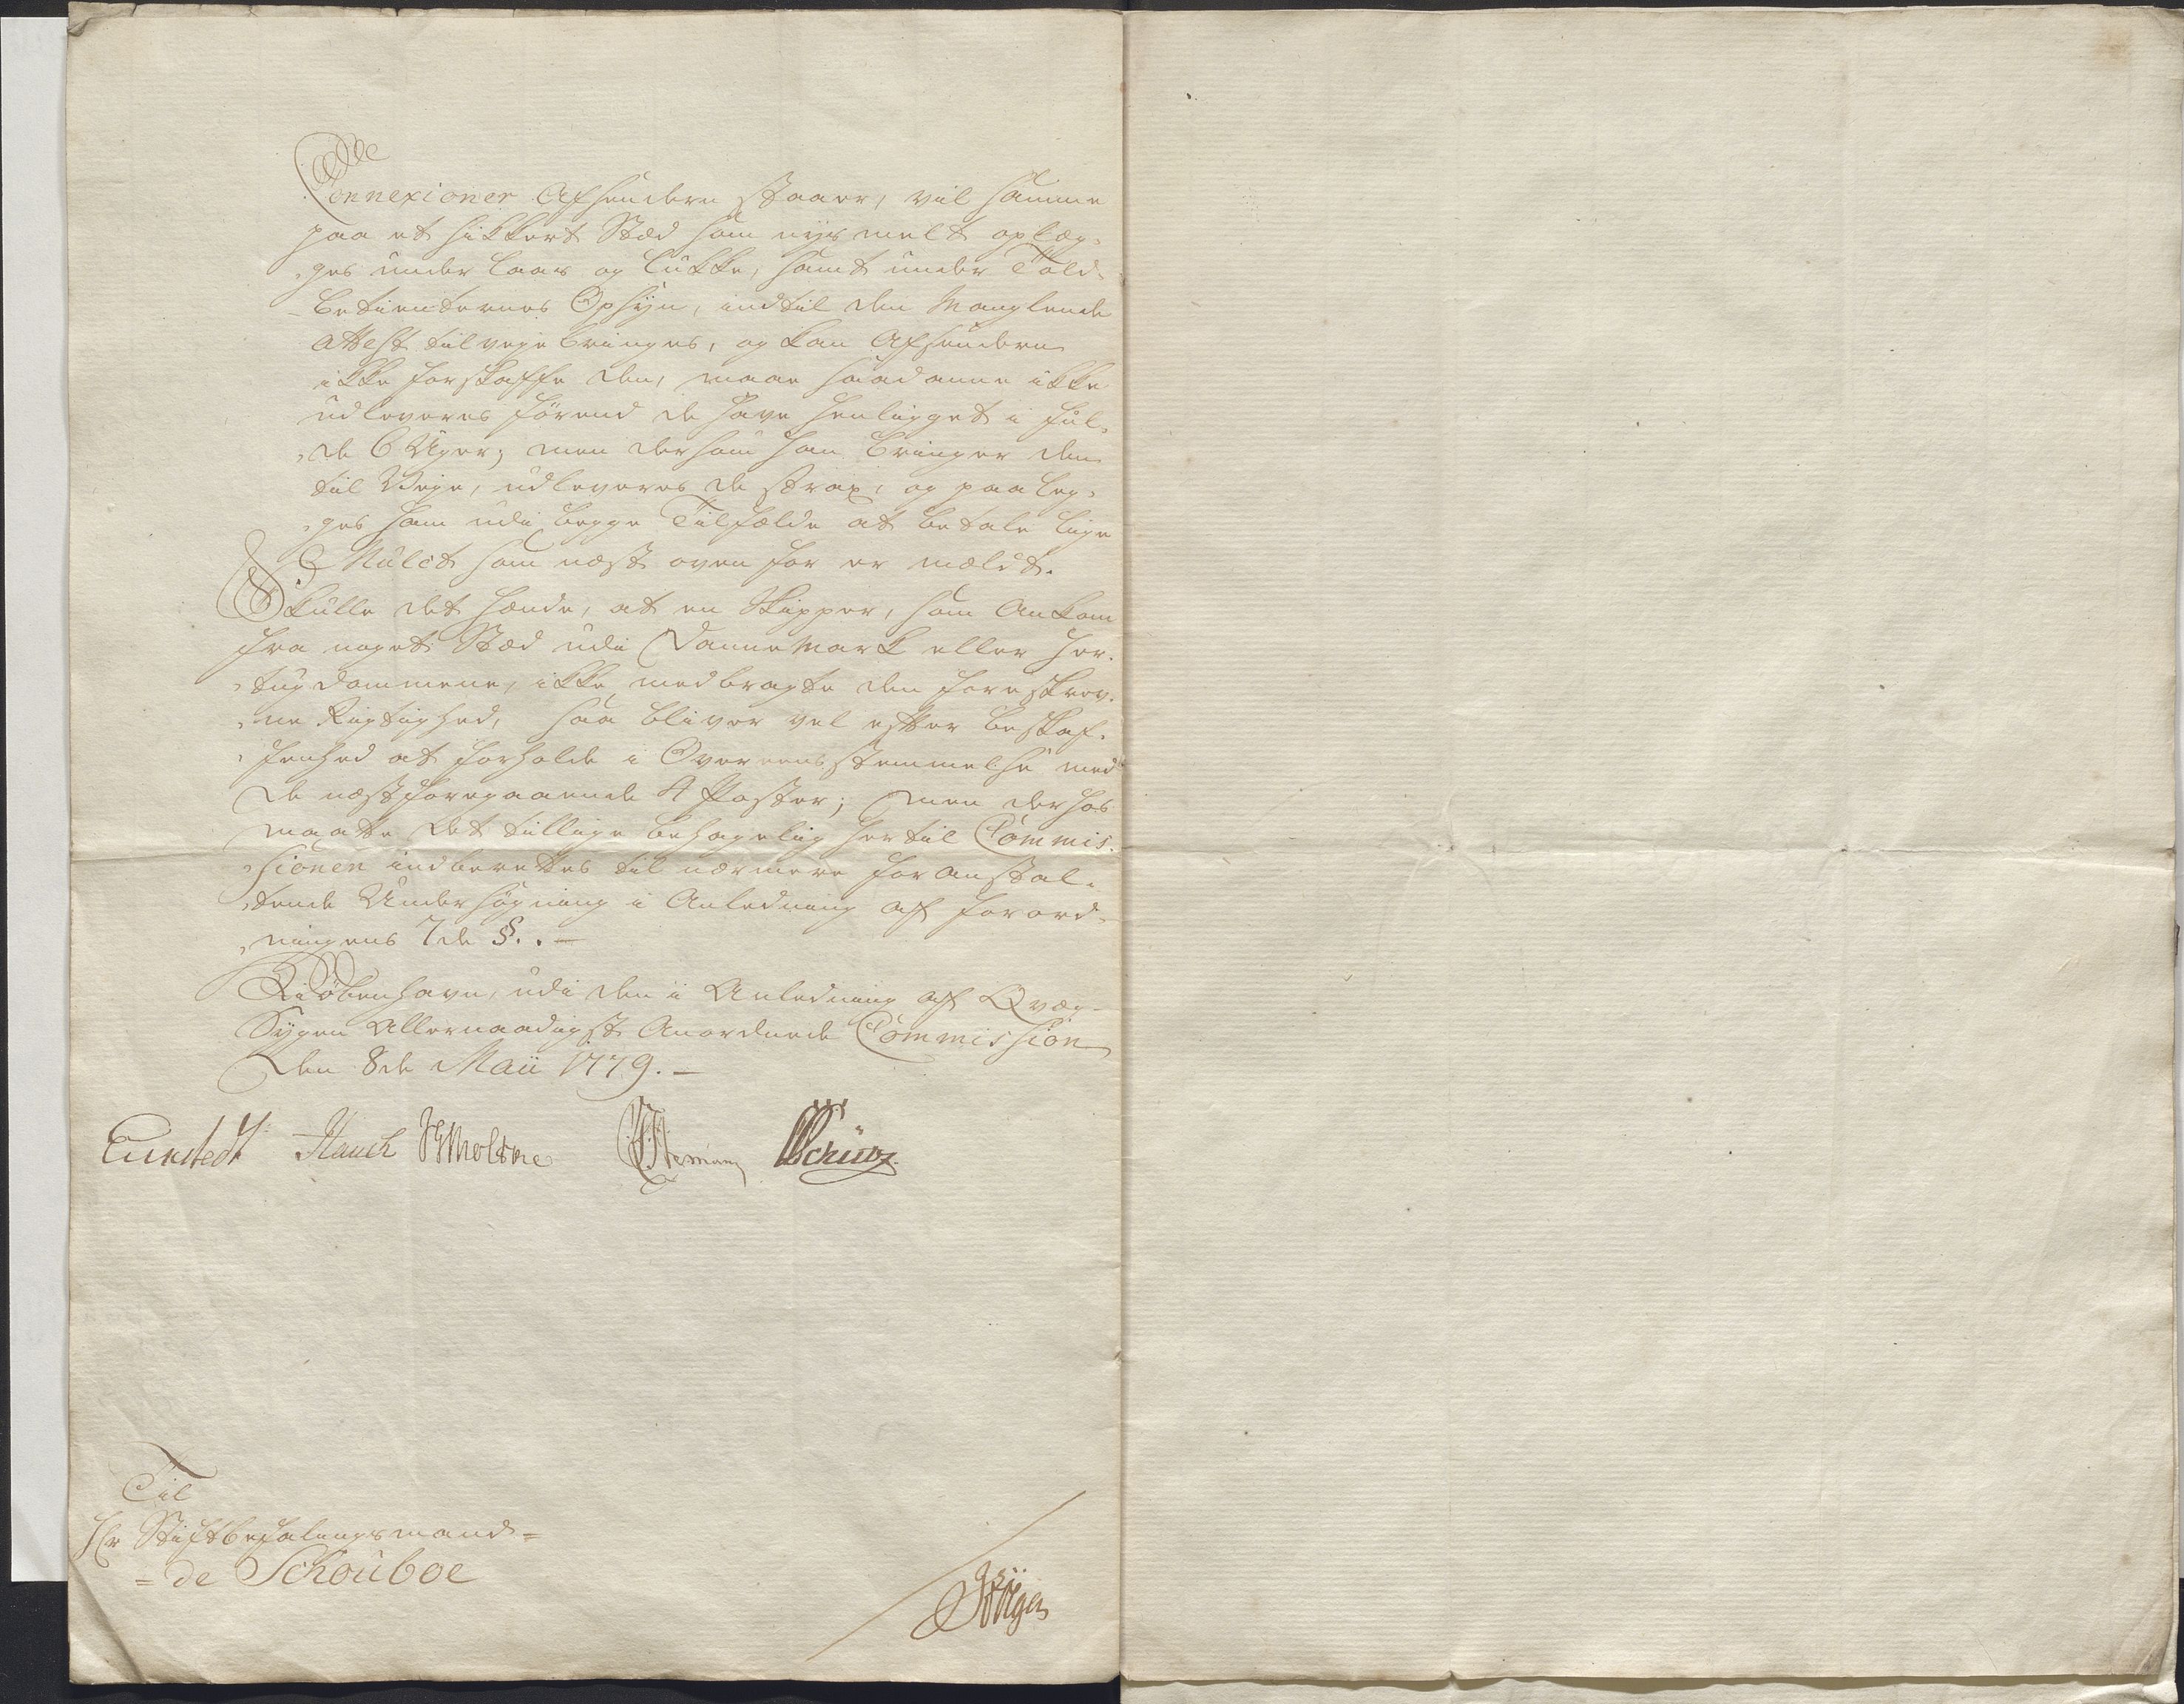 Connexioner Afsenderen staaer, vil samme
paa et sikkert Stæd som nys melt oplæg-
ges under Laas og Lukke, samt under Told-
betienternes Opsyn, indtil den Manglende
Attest tilveyebringes, og kan Afsenderen
ikke forskaffe den, maae saadanne ikke
udleveres förend de have henligget i ful-
de 6 Uger; men dersom han bringer den
til Veye, udleveres de strax, og paaleg-
ges ham udi begge Tilfælde at betale lige
Mulct som næst oven for er meldt.
Skulle det hænde, at en Skipper, som Ankom
fra noget Stæd udi Dannemark eller Her-
tugdommene, ikke medbragte den foreskrev-
ne Rigtighed, saa bliver vel efter beskaf-
fenhed at forholde i Overeensstemmelse med
de næstforegaaende 4 Poster; men derhos
maatte det tillige behagelig hertil Commis-
sionen indberettes til nærmere foranstal-
tende Undersøgning i Anledning af Forord-
ningens 7de §. . —
Kiöbenhavn, udi den i Anledning af Qvæg-
Sygen Allernaadigst Anordnede Commission
den 8de Maii 1779. —
Eickstedt Hauch Moltke Stemann Schütz
Til
Hr Stiftbefalingsmand =
= de Schouboe